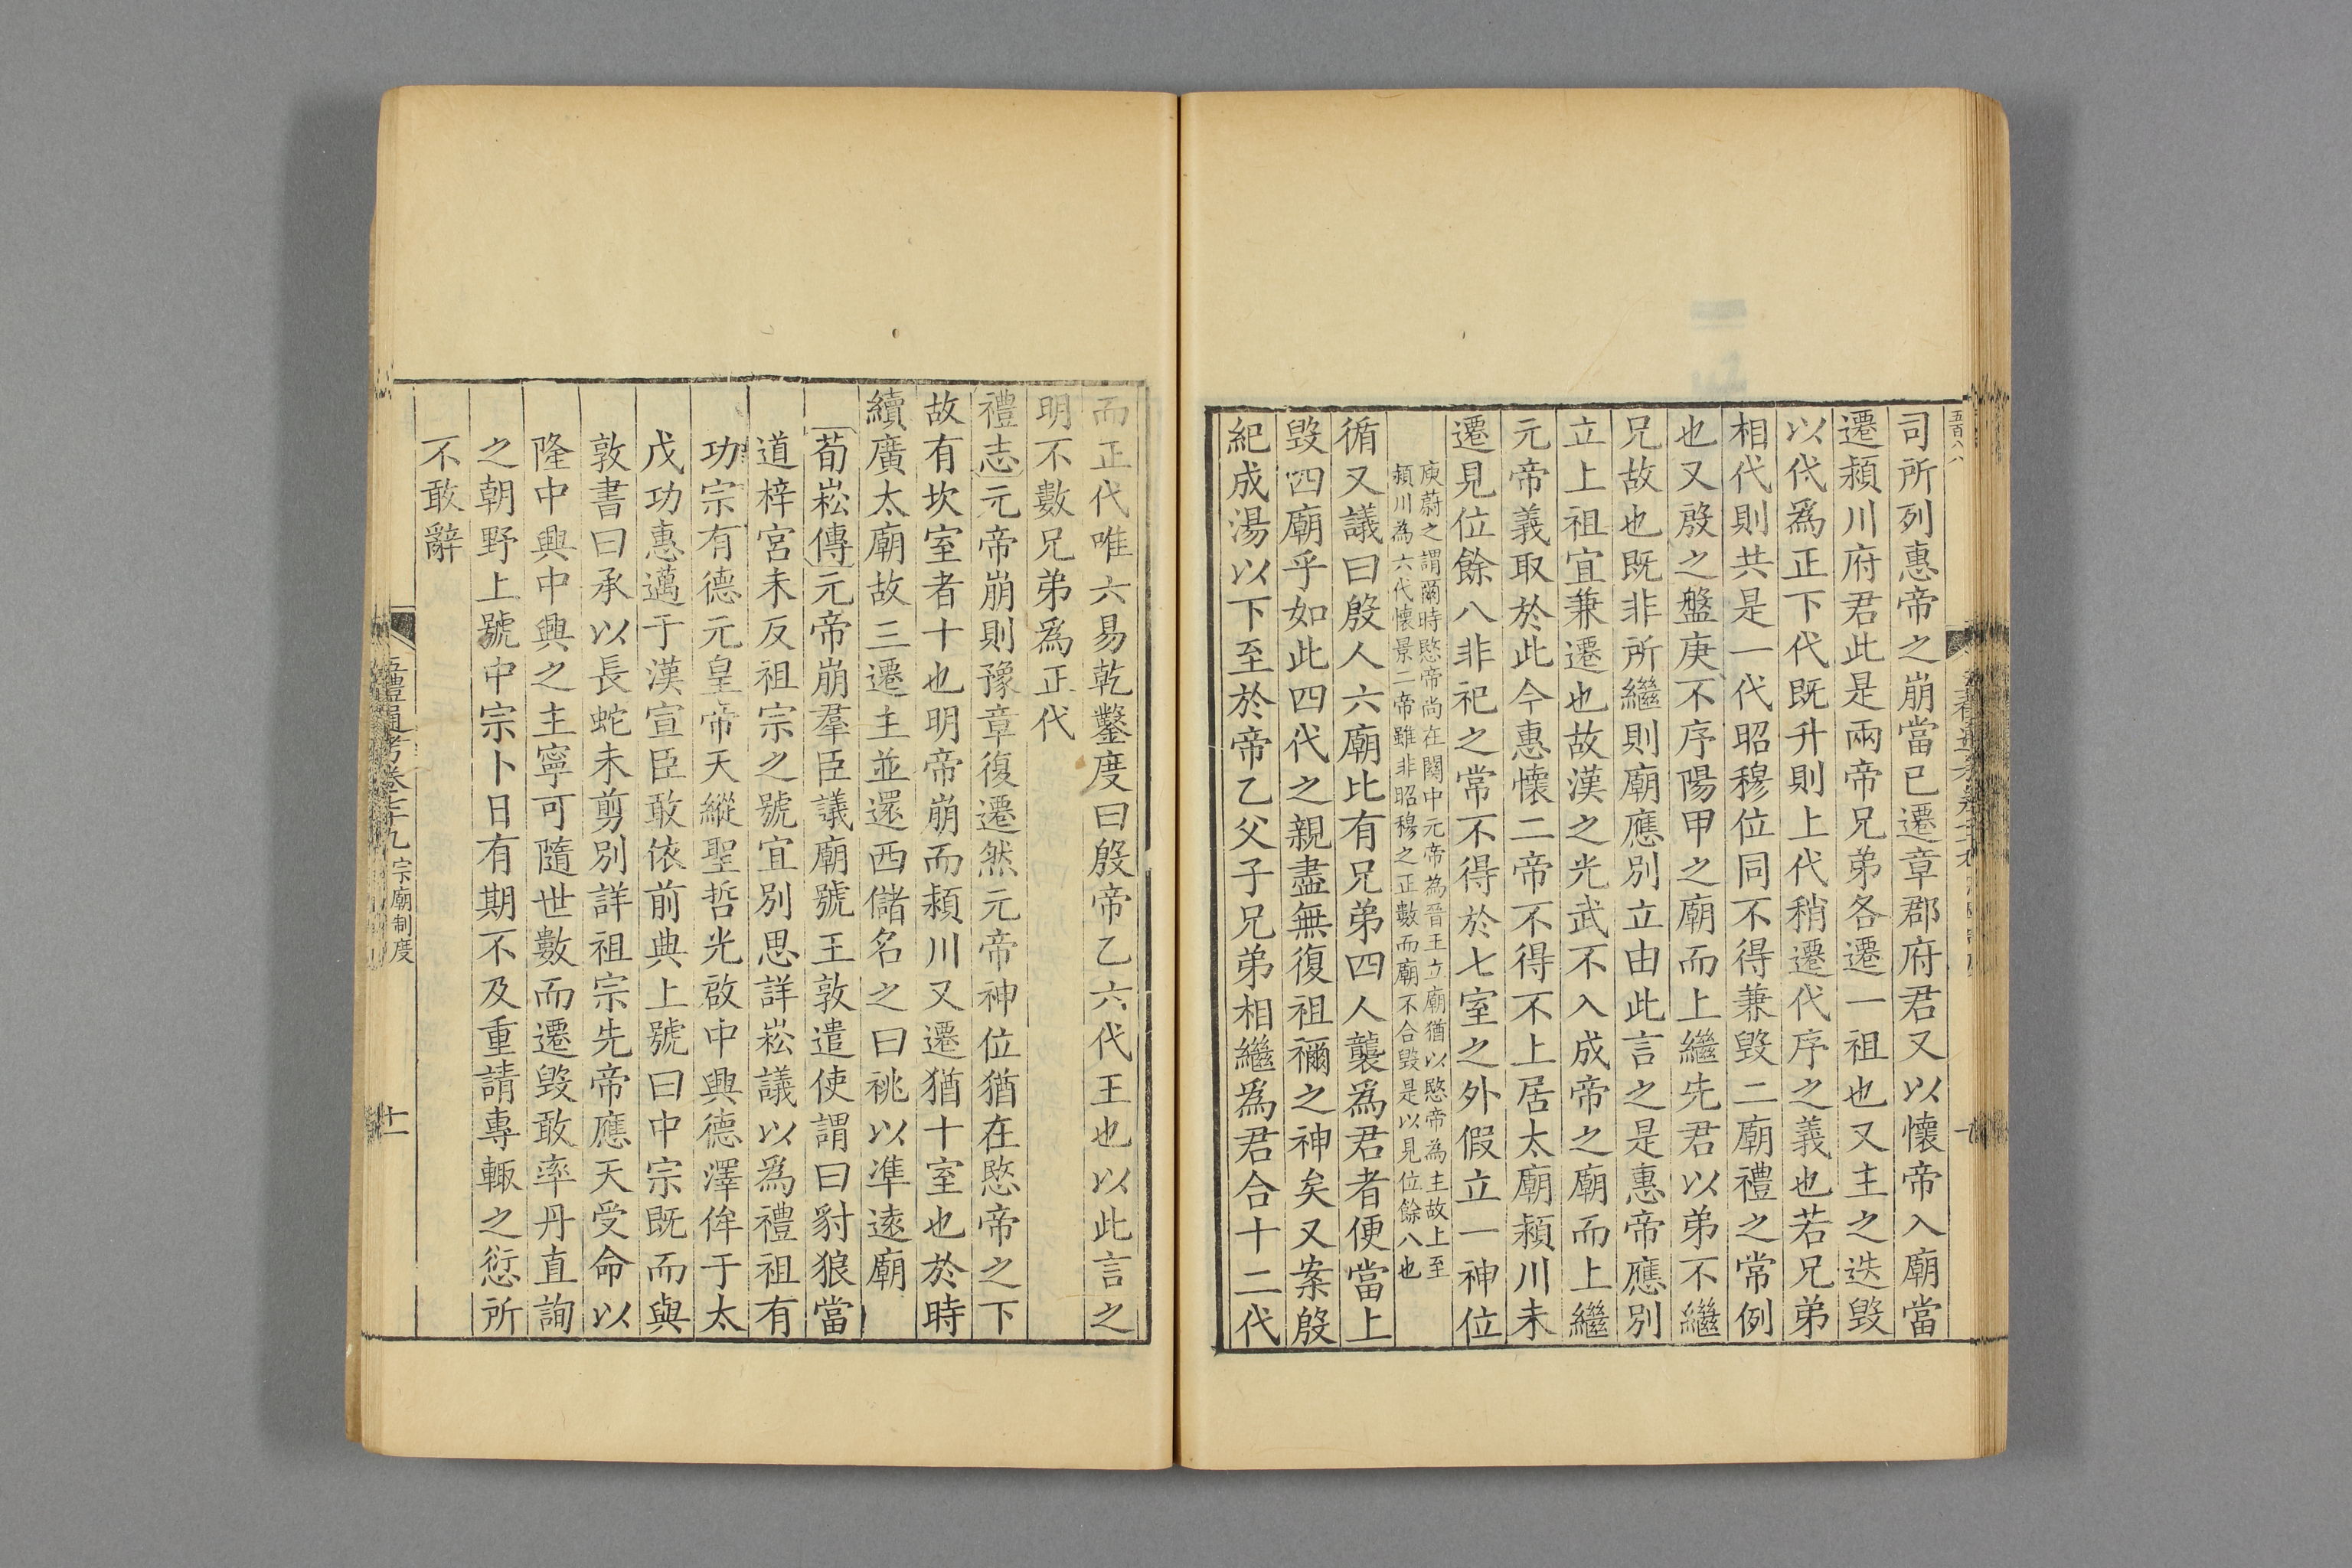 五百八八
司所列惠帝之崩當已遷章郡府君又以懷帝入廟當
遷潁川府君此是兩帝兄弟各遷一祖也又主之迭毀
以代爲正下代既升則上代稍遷代序之義也若兄弟
相代則共是一代昭穆位同不得兼毀二廟禮之常例
也又殷之盤庚不序陽甲之廟而上繼先君以弟不繼
兄故也既非所繼則廟應別立由此言之是惠帝應別
立上祖宜兼遷也故漢之光武不入成帝之廟而上繼
元帝義取於此今惠懷二帝不得不上居太廟潁川未
遷見位餘八非祀之常不得於七室之外假立一神位
庾蔚之謂爾時愍帝尚在關中元帝為晉王立廟猶以愍帝為主故上至
潁川為六代懷景二帝雖非昭穆之正數而廟不合毀是以見位餘八也
循又議曰殷人六廟比有兄弟四人襲爲君者便當上
毀四廟乎如此四代之親盡無復祖禰之神矣又案殷
紀成湯以下至於帝乙父子兄弟相繼爲君合十二代
而正代唯六易乾鑿度曰殷帝乙六代王也以此言之
明不數兄弟爲正代
禮志元帝崩則豫章復遷然元帝神位猶在愍帝之下
故有坎室者十也明帝崩而潁川又遷猶十室也於時
續廣太廟故三遷主並還西儲名之曰祧以準遠廟
荀崧傳元帝崩羣臣議廟號王敦遣使謂曰豺狼當
道梓宮未反祖宗之號宜別思詳崧議以爲禮祖有
功宗有德元皇帝天縱聖哲光啟中興德澤侔于太
戊功惠邁于漢宣臣敢依前典上號曰中宗既而與
敦書曰承以長蛇未剪別詳祖宗先帝應天受命以
隆中興中興之主寧可隨世數而遷毀敢率丹直詢
之朝野上號中宗卜日有期不及重請專輒之愆所
不敢辭
五禮通考卷七十九 宗廟制度
十一